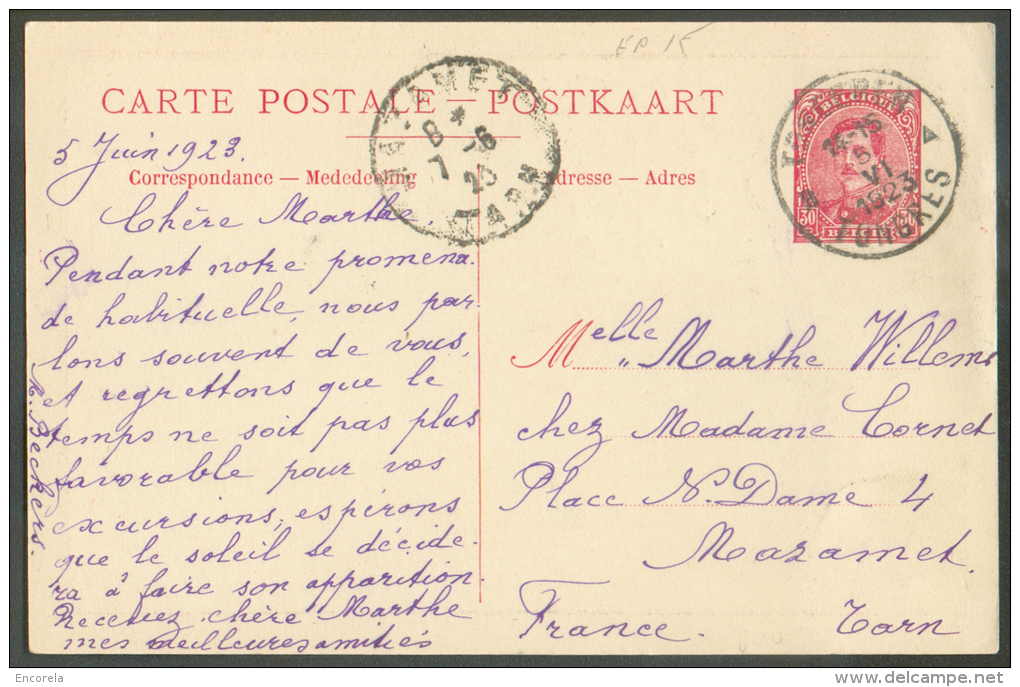 EP 15
CARTE POSTALE — POSTKAART
5 Juin 1923.
Correspondance — Mededeeling
Adresse — Adres
Chère Marthe.
Pendant notre promena-
de habituelle, nous par-
lons souvent de vous,
et regrettons que le
temps ne soit pas plus
favorable pour vos
excursions, espérons
que le soleil se décide-
ra à faire son apparition.
Recevez chère Marthe
mes meilleures amitiés
M. Beckers.
BELGIQUE
30
14-15
5
VI
1923
TONGRES
MAZAMET
8 6
7 23
TARN
Melle Marthe Willems
chez Madame Cornet
Place N. Dame 4
Mazamet.
France. Tarn
Encorela
delcampe.net